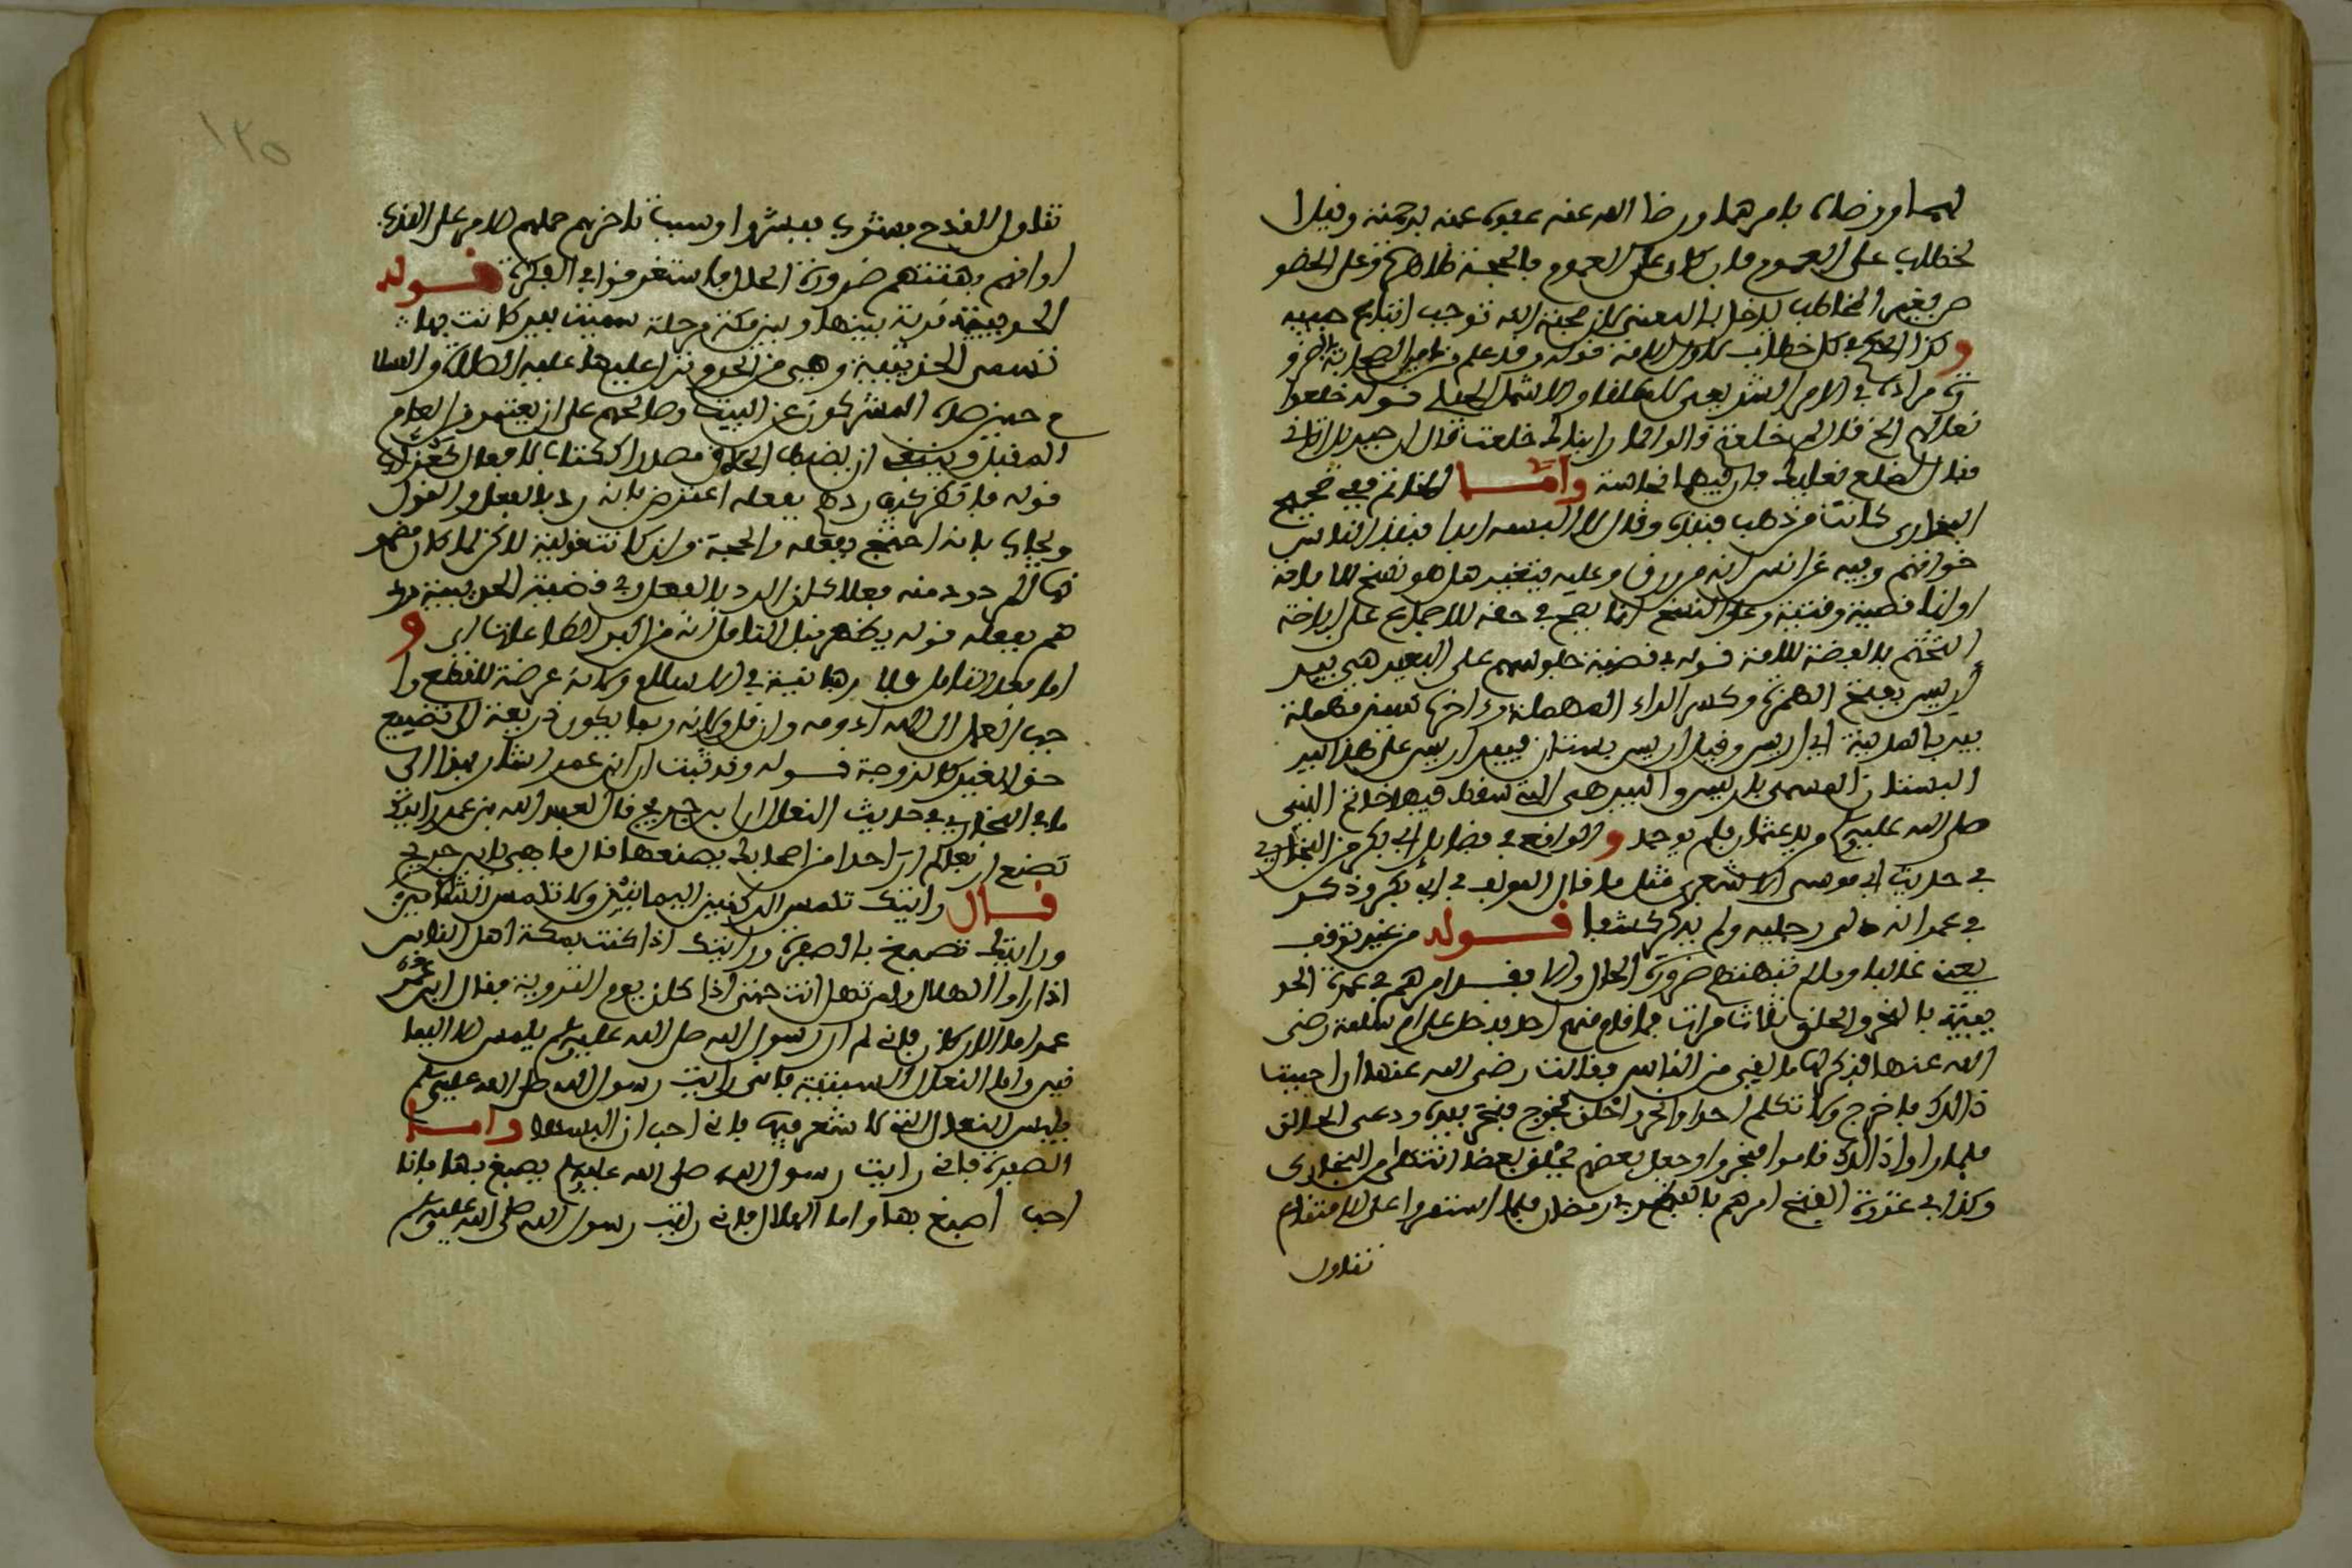 لهما ورضاه بامرهما ورضا الله عنه عفوه عنه برحمته وفيه ا
لخطاب على العموم فان كان على العموم فالحجة ظاهرة وعلى الخصو
ص فغير المخاطب يدخل بالمعنى لان محبة الله توجب اتباع حبيبه
وكذا الحكم في كل خطاب
في الامر التشريعي قوله خلعوا
نعالهم الخ قال لم خلعتم قالوا انا رايناك خلعت قال ان جبريل اتاني
فقال اخلع نعليك فان فيهما نجاسة واما الخاتم ففي صحيح
البخاري كانت من ذهب فنبذه وقال لا البسه ابدا فنبذ الناس
خواتمهم وفيه عن انس انه من ورق وعليه فتغييره هل هو نسخ
او وعلى النسخ انما يصح في حقه للاجماع على اباحة
التختم بالفضة للامة قوله في قضية جلوسهم على البعير هي بير
اريس بفتح الهمزة وكسر الراء المهملة واخره سين مهملة
بير بالمدينة اي اريس وقيل اريس بستان فبير اريس على هذا بير
البستان المسمى باريس والبير هي التي سقط فيها خاتم النبي
صلى الله عليه وسلم من يد عثمان فلم يوجد و الواقع في فضايل ابي بكر من البخاري
في حديث ابي موسى الاشعري مثل ما قال المولف في ابي بكر وذكر
في عمر انه دلى رجليه ولم يذكر كشفا قوله من غير توقف
يعني غالبا ومالم تبهتهم ضرورة الحال والا فقد امرهم في عمرة الحد
يبية بالنحر والحلق ثلاث مرات فما قام منهم احد فدخل على ام سلمة رضي
الله عنها فذكر لها ما لقي من الناس فقالت رضي الله عنها اتحب
ذالك فاخرج ولا تكلم احدا وانحر واحلق فخرج فنحر بيده ودعى الحالق
فلما راوا ذالك قاموا فنحروا وجعل بعضهم يحلق بعضا انتهى من البخاري
وكذا في غزوة الفتح امرهم بالفطر في رمضان فلما استمروا على الامتناع
تناول
١٣٥
تناول القدح فشرب فشربوا وسبب تاخرهم حملهم الامر على الندب
او انهم بهتتهم ضرورة الحال فاستغرقوا في الفكرة قوله
الحديبية قرية بينها وبين مكة مرحلة سميت ببير كانت بها
تسمى الحديبية وهي من الحرم نزل عليها عليه الصلاة والسلا
م حين صده المشركون عن البيت وصالحهم على ان يعتمر من العام
المقبل
قوله اعترض بانه رد بالفعل والقول
ويجاب بانه احتج بفعله والحجة وان كانت قولية لاكن لما كان مضمو
نها فعلا كان الرد بالفعل وفي قضية الحديبية رد
هم بفعله قوله يظهر قبل التامل انه من اكبر الطاعات اي و
اما بعد التامل فلا رهبانية في الاسلام ولانه عرضة للقطع وا
حب العمل الى الله ادومه وان قل ولانه ربما يكون ذريعة الى تضييع
حق الغير كالزوجة قوله وقد ثبت ان ابن عمر اشار بهذا الى
ما في البخاري في حديث النعال ان ابن جريج قال لعبد الله بن عمر رايتك
تصنع اربعا لم ار احدا من اصحابك يصنعها قال ما هي يا ابن جريج
قال رايتك تلمس الركنين اليمانيين ولا تلمس الشاميين
ورايتك تصبغ بالصفرة ورايتك اذا كنت بمكة اهل الناس
اذا راوا الهلال ولم تهل انت حتى اذا كان يوم التروية فقال ابن عمر
اما الاركان فاني لم ار رسول الله صلى الله عليه وسلم يلمس الا اليما
نيين واما النعال السبتية فاني رايت رسول الله صلى الله عليه وسلم
يلبس النعال التي لا شعر فيها فاني احب ان البسها واما
الصفرة فاني رايت رسول الله صلى الله عليه وسلم يصبغ بها فانا
احب اصبغ بها واما الهلال فاني رايت رسول الله صلى الله عليه وسلم